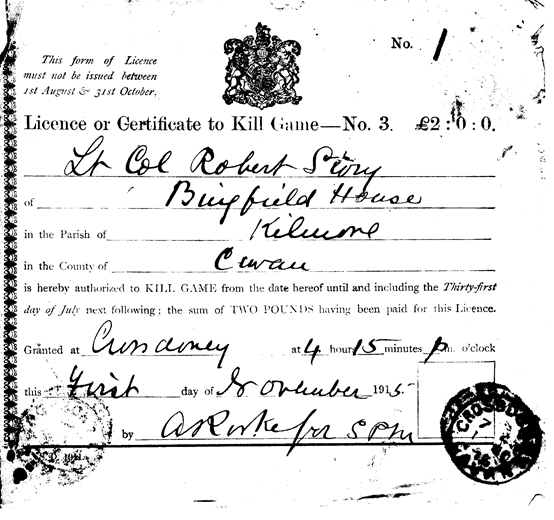 This form of Licence
must not be issued between
1st August & 31st October.
No. 1
Licence or Certificate to Kill Game—No. 3. £2:0:0.
Lt Col Robert Story
of Bingfield House
in the Parish of Kilmore
in the County of Cavan
is hereby authorized to KILL GAME from the date hereof until and including the Thirty-first
day of July next following; the sum of TWO POUNDS having been paid for this Licence.
Granted at Crossdoney at 4 hours 15 minutes p.m. o'clock
this First day of November 1915
by for S P M
CROSSDONEY